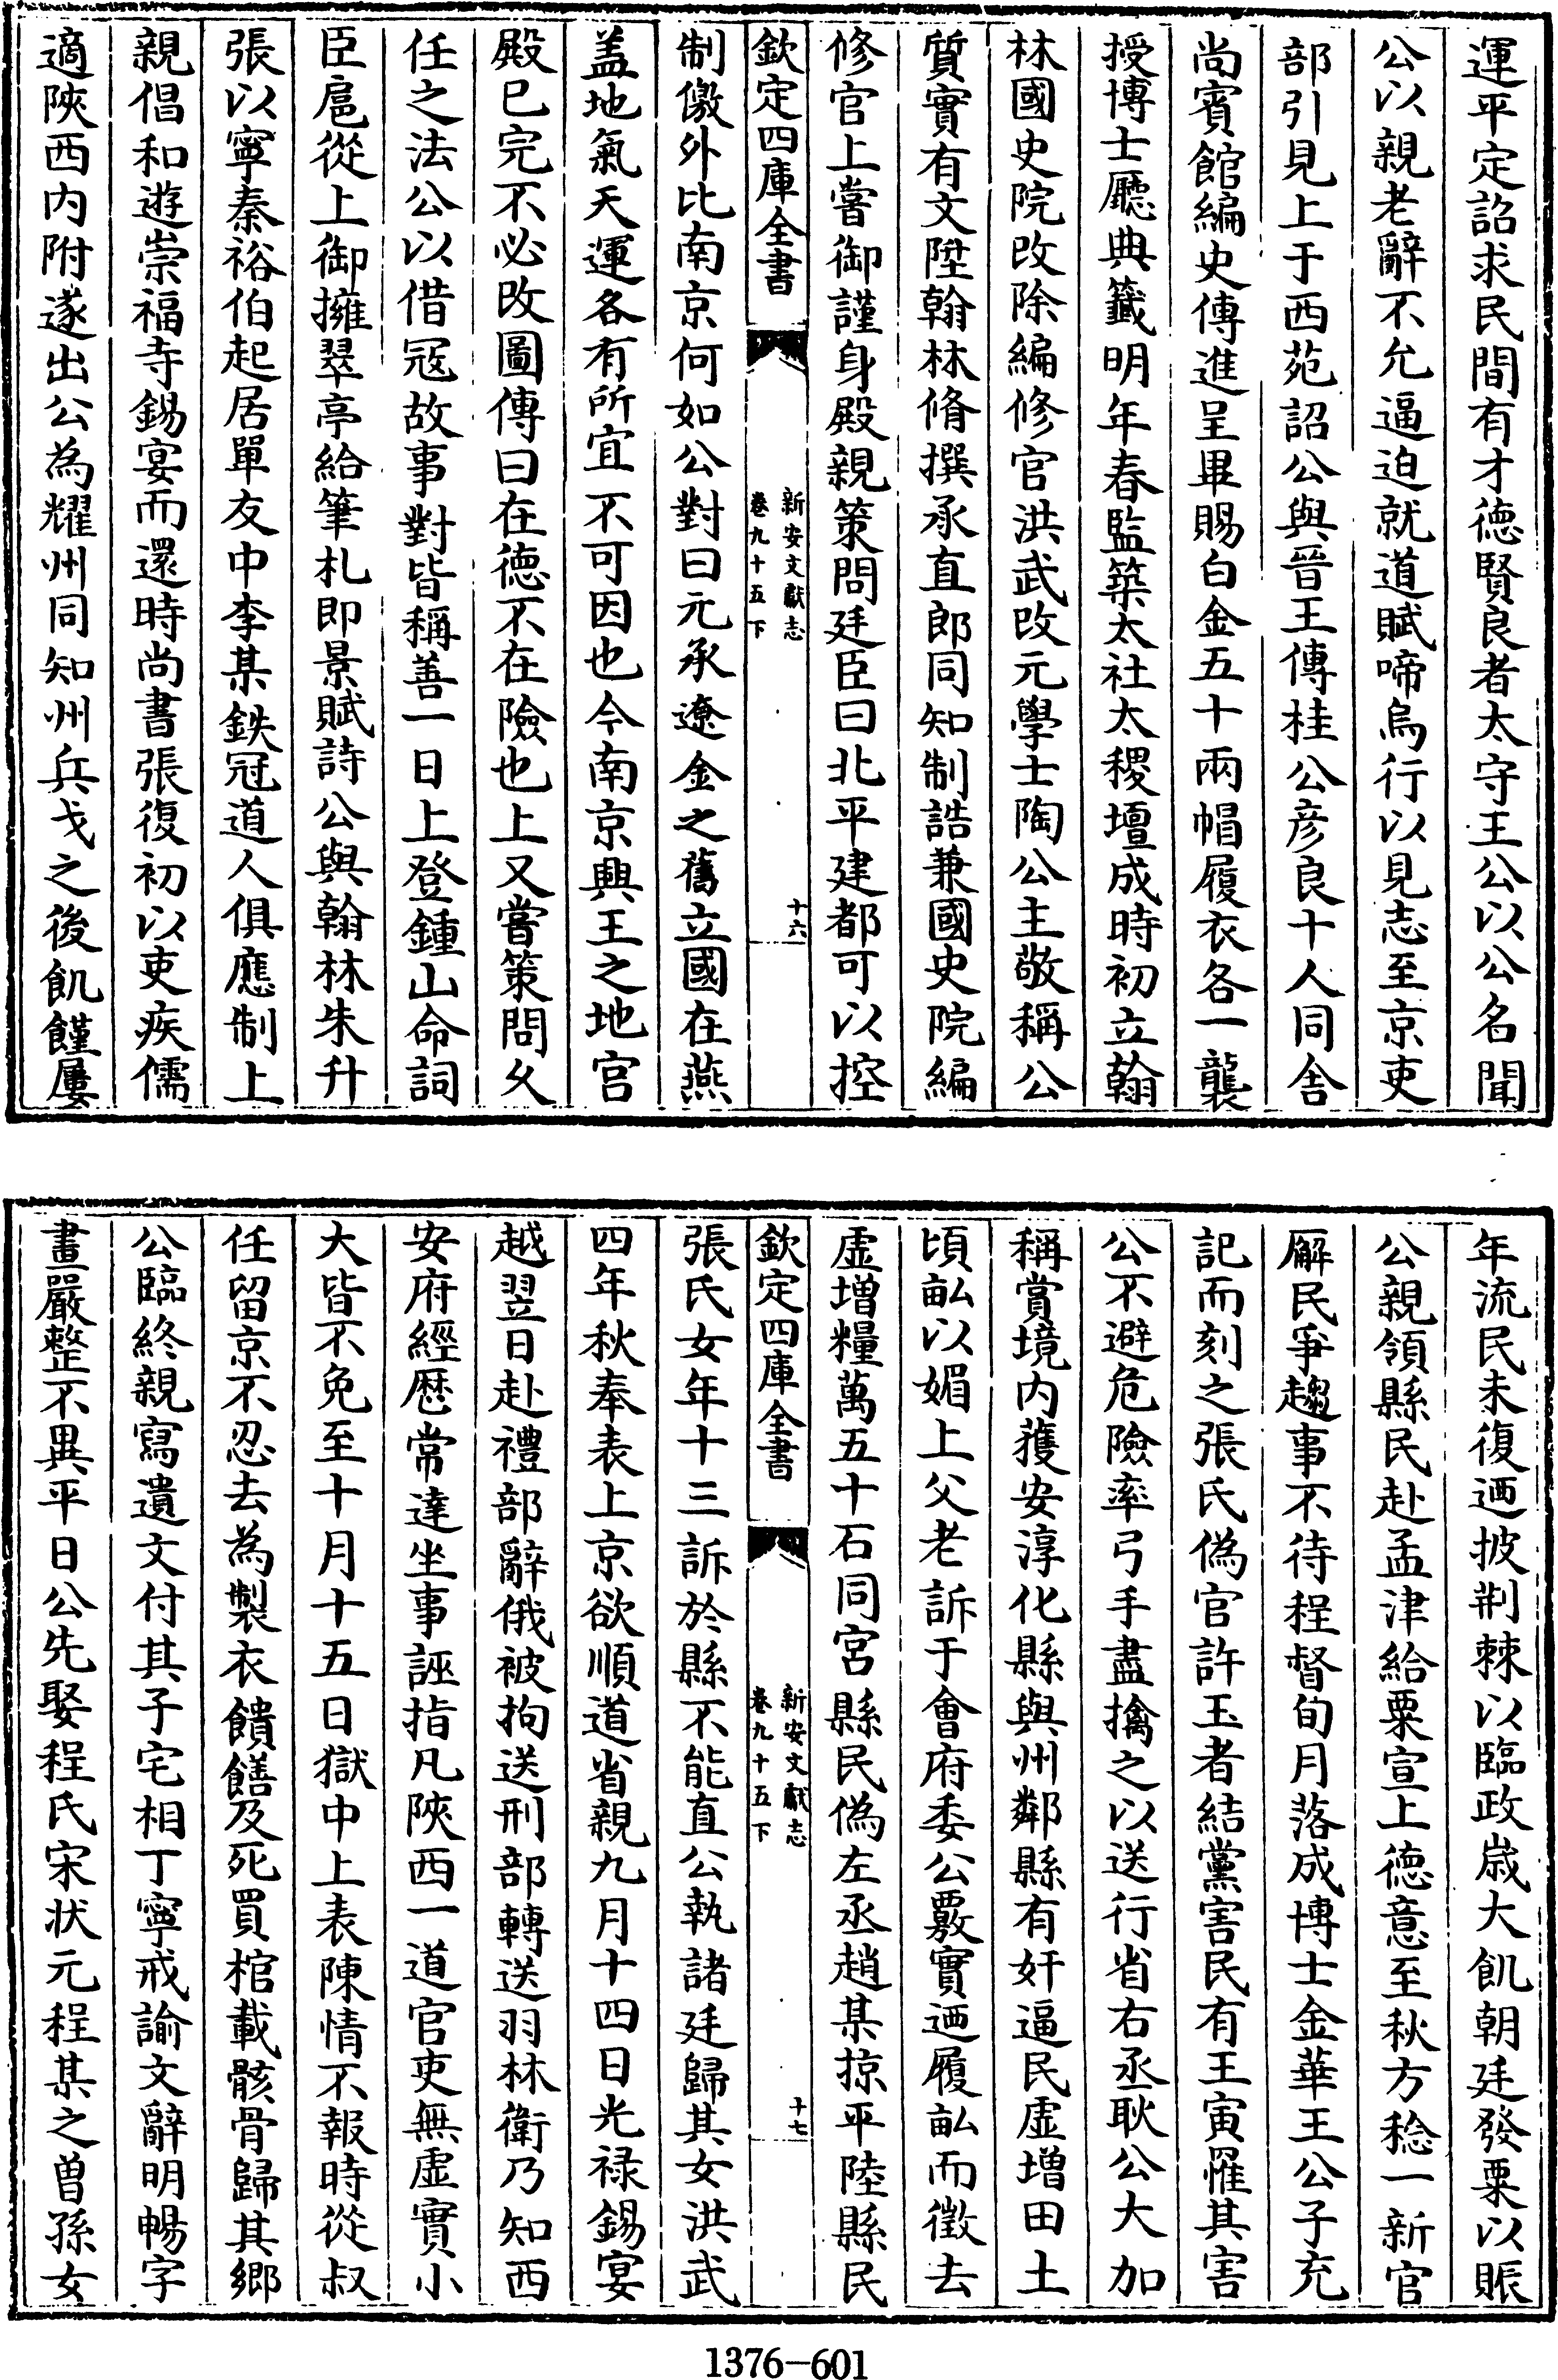 運平定詔求民間有才徳賢良者太守王公以公名聞
公以親老辭不允逼迫就道賦啼烏行以見志至京吏
部引見上于西苑詔公與晉王傅桂公彦良十人同舎
尚賓館編史傳進呈畢賜白金五十兩帽履衣各一襲
授博士廳典籖明年春監築太社太稷壇成時初立翰
林國史院改除編修官洪武改元學士陶公主敬稱公
質實有文陞翰林脩撰承直郎同知制誥兼國史院編
修官上嘗御謹身殿親策問廷臣曰北平建都可以控
欽定四庫全書
新安文獻志
卷九十五下
十六
制儌外比南京何如公對曰元承遼金之舊立國在燕
盖地氣天運各有所宜不可因也今南京興王之地宫
殿已完不必改圖傳曰在徳不在險也上又嘗策問久
任之法公以借冦故事對皆稱善一日上登鍾山命詞
臣扈從上御擁翠亭給筆札即景賦詩公與翰林朱升
張以寧秦裕伯起居單友中李某鉄冠道人俱應制上
親倡和遊崇福寺錫宴而還時尚書張復初以吏疾儒
適陜西内附遂出公為耀州同知州兵戈之後飢饉屢
年流民未復廼披荆棘以臨政歳大飢朝廷發粟以賑
公親領縣民赴孟津給粟宣上徳意至秋方稔一新官
廨民爭趨事不待程督旬月落成博士金華王公子充
記而刻之張氏偽官許玉者結黨害民有王寅罹其害
公不避危險率弓手盡擒之以送行省右丞耿公大加
稱賞境内獲安淳化縣與州鄰縣有奸逼民虚增田土
頃畝以媚上父老訴于會府委公覈實廼履畝而徴去
虚增糧萬五十石同宫縣民偽左丞趙某掠平陸縣民
欽定四庫全書
新安文獻志
卷九十五下
十七
張氏女年十三訴於縣不能直公執諸廷歸其女洪武
四年秋奉表上京欲順道省親九月十四日光禄錫宴
越翌日赴禮部辭俄被拘送刑部轉送羽林衛乃知西
安府經歴常達坐事誣指凡陜西一道官吏無虚實小
大皆不免至十月十五日獄中上表陳情不報時從叔
任留京不忍去為製衣饋饍及死買棺載骸骨歸其鄉
公臨終親寫遺文付其子宅相丁寧戒諭文辭明暢字
畫嚴整不異平日公先娶程氏宋状元程某之曽孫女
1376-601